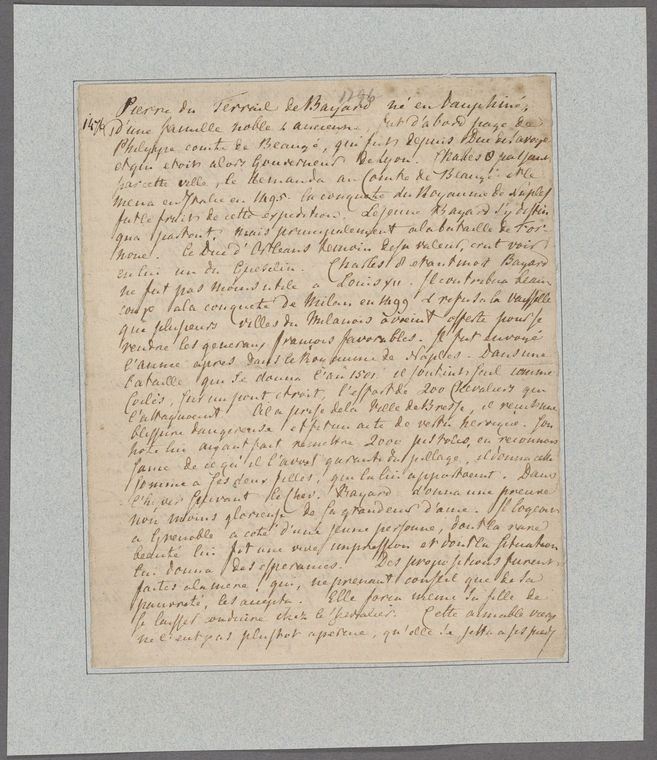 1296
Pierre du Terrail de Bayard né en Dauphiné,
1476 d'une famille noble & ancienne fut d'abord page de
Philippe comte de Beaugé, qui fut depuis Duc de Savoye
et qui etoit alors Gouverneur de Lyon. Charles 8 passant
par cette ville, le demanda au Comte de Beaugé et le
mena en Italie en 1495. la conquete du Royaume de Naples
fut le fruit de cette expedition. Le jeune Bayard s'y distin
gua partout, mais principalement a la bataille de For-
noue. Le Duc d'Orleans temoin de sa valeur, crut voir
en lui un du Guesclin. Charles 8 etant mort Bayard
ne fut pas moins utile a Louis XII. Il contribua beau
coup a la conquete de Milan en 1499 & refusa la vaisselle
que plusieurs villes du Milanois avoient offerte pour se
rendre les generaux françois favorables. Il fut envoyé
l'année apres dans le Royaume de Naples. Dans une
bataille qui se donna l'an 1501 il soutint seul comme
Cocles, sur un pont etroit, l'effort de 200 Chevaliers qui
l'attaquoient. A la prise de la Ville de Bresse, il recut une
blessure dangereuse et fit un acte de vertu heroique. Son
hote lui ayant fait remettre 2000 pistoles, en reconnois
sance de ce qu'il l'avoit garanti du pillage, il donna cette
somme a ses deux filles, qui la lui apportoient. Dans
l'hiver suivant le Chev. Bayard donna une preuve
non moins glorieuse de sa grandeur d'ame. Il logeoit
a Grenoble a coté d'une jeune personne, dont la rare
beauté lui fit une vive impression et dont la situation
lui donna des esperances. Des propositions furent
faites a la mere, qui, ne prenant conseil que de sa
pauvreté, les accepta. Elle força meme sa fille de
se laisser conduire chez le chevalier. Cette aimable vierge
ne l'eut pas plustot aperçue, qu'elle se jetta a ses pieds